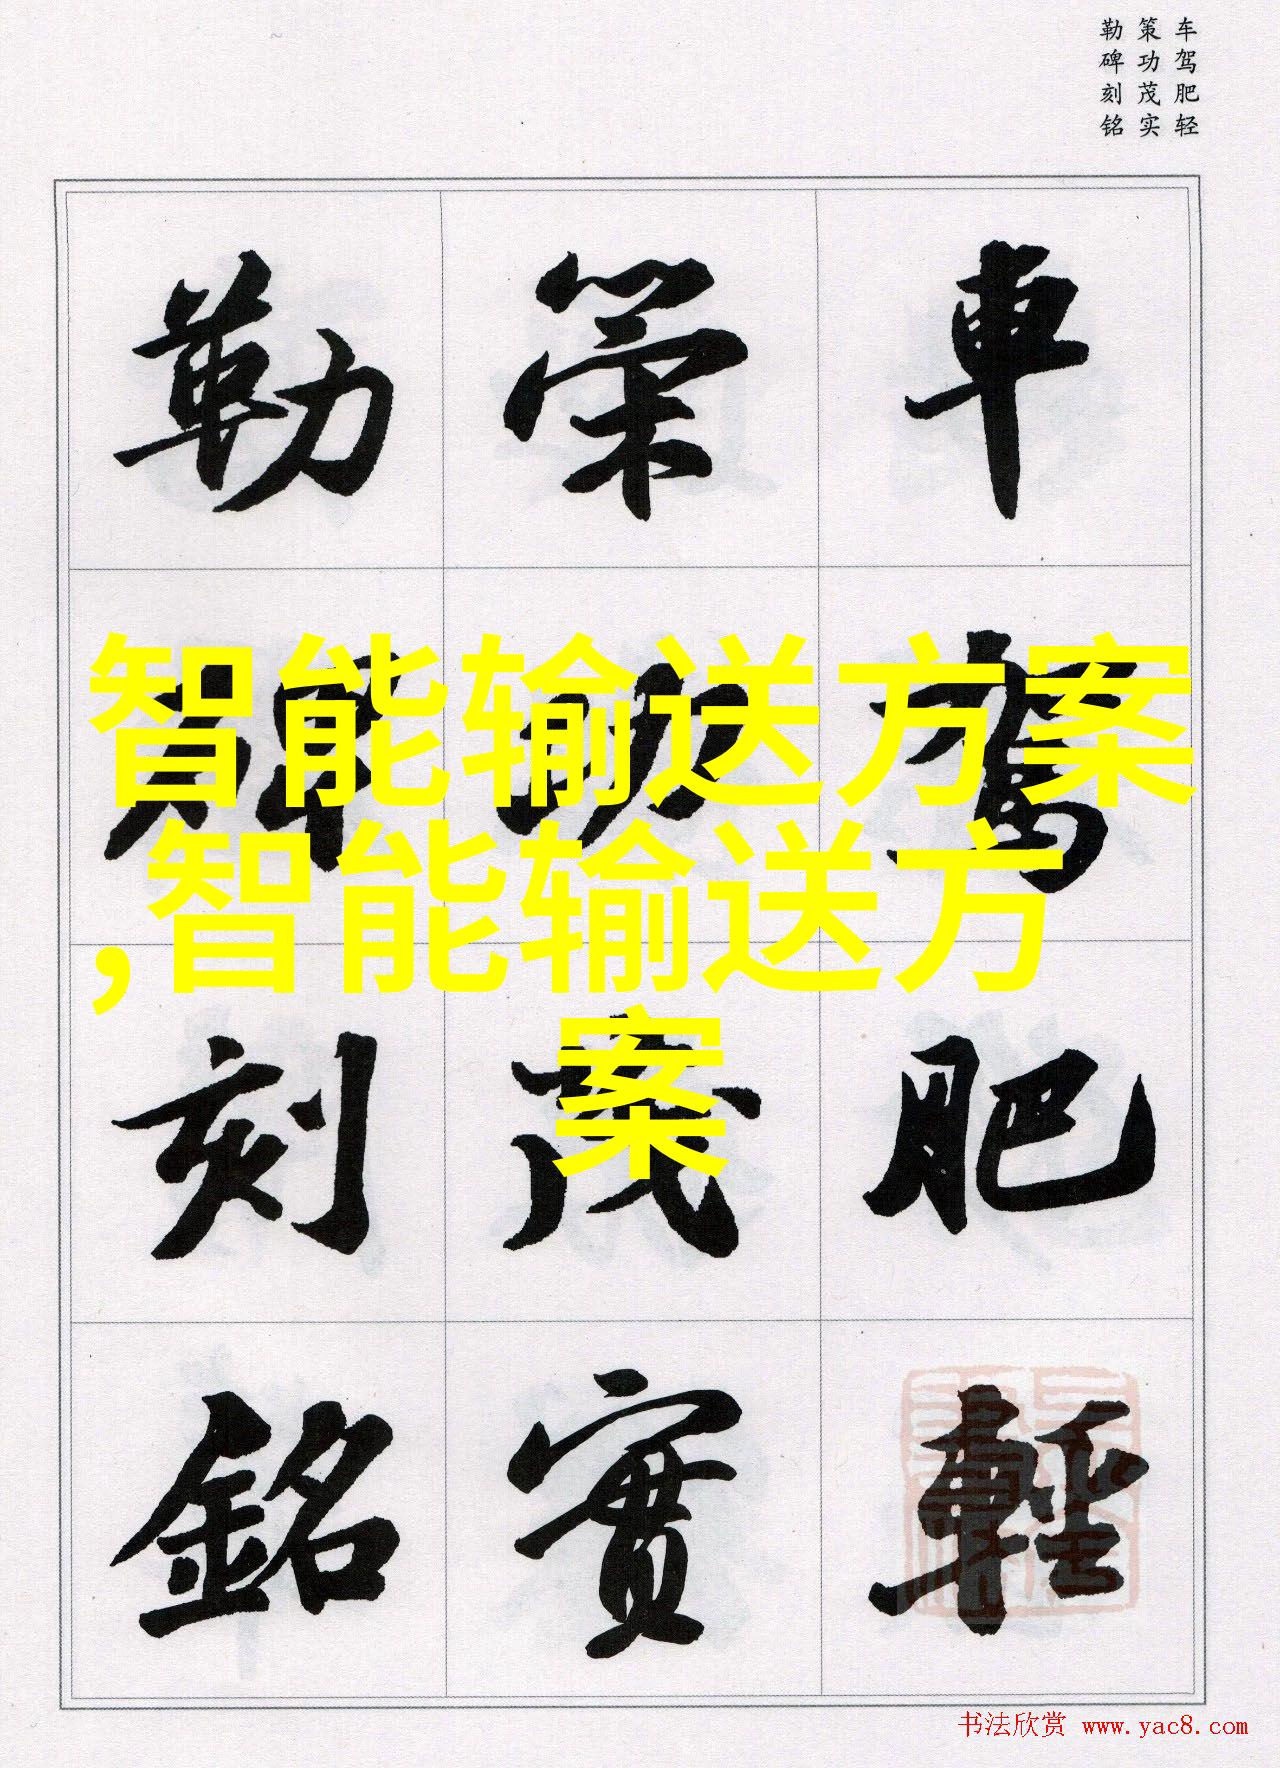 车驾肥轻
策功茂实
勒碑刻铭
車駕肥輕
策功茂實
勒碑刻銘
智能输送方案
,智能输送方
案
书法欣赏 www.yac8.com